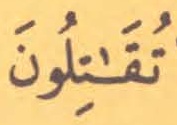 تُقَـٰتِلُونَ